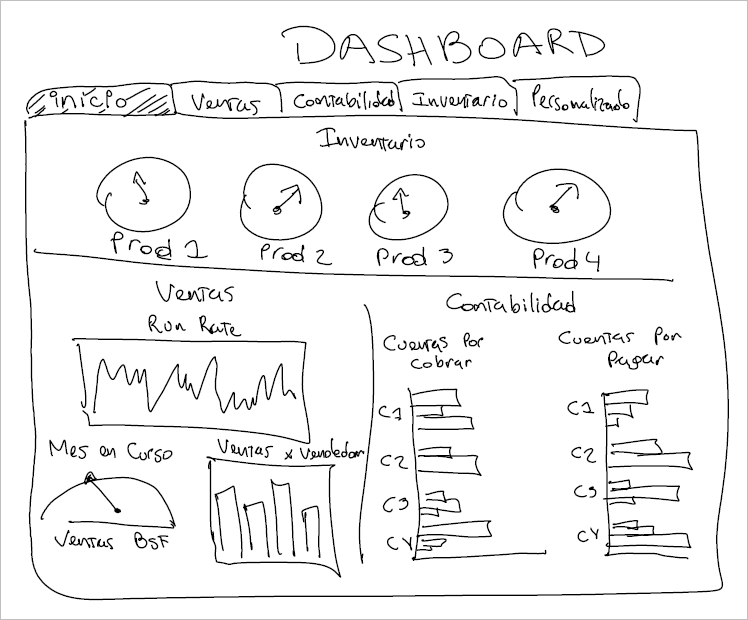 DASHBOARD
inicio Ventas Contabilidad Inventario Personalizado
Inventario
Prod 1 Prod 2 Prod 3 Prod 4
Ventas
Run Rate
Mes en Curso
Ventas BsF
Ventas x Vendedor
Contabilidad
Cuentas Por
Cobrar
C1
C2
C3
C4
Cuentas Por
Pagar
C1
C2
C3
C4